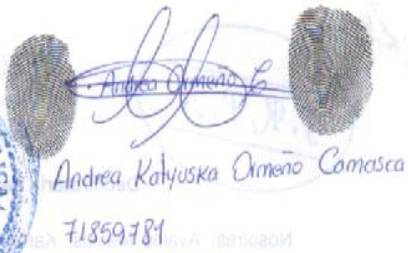 Andrea Ormeño C
Andrea Katyuska Ormeño Camasca
71859781